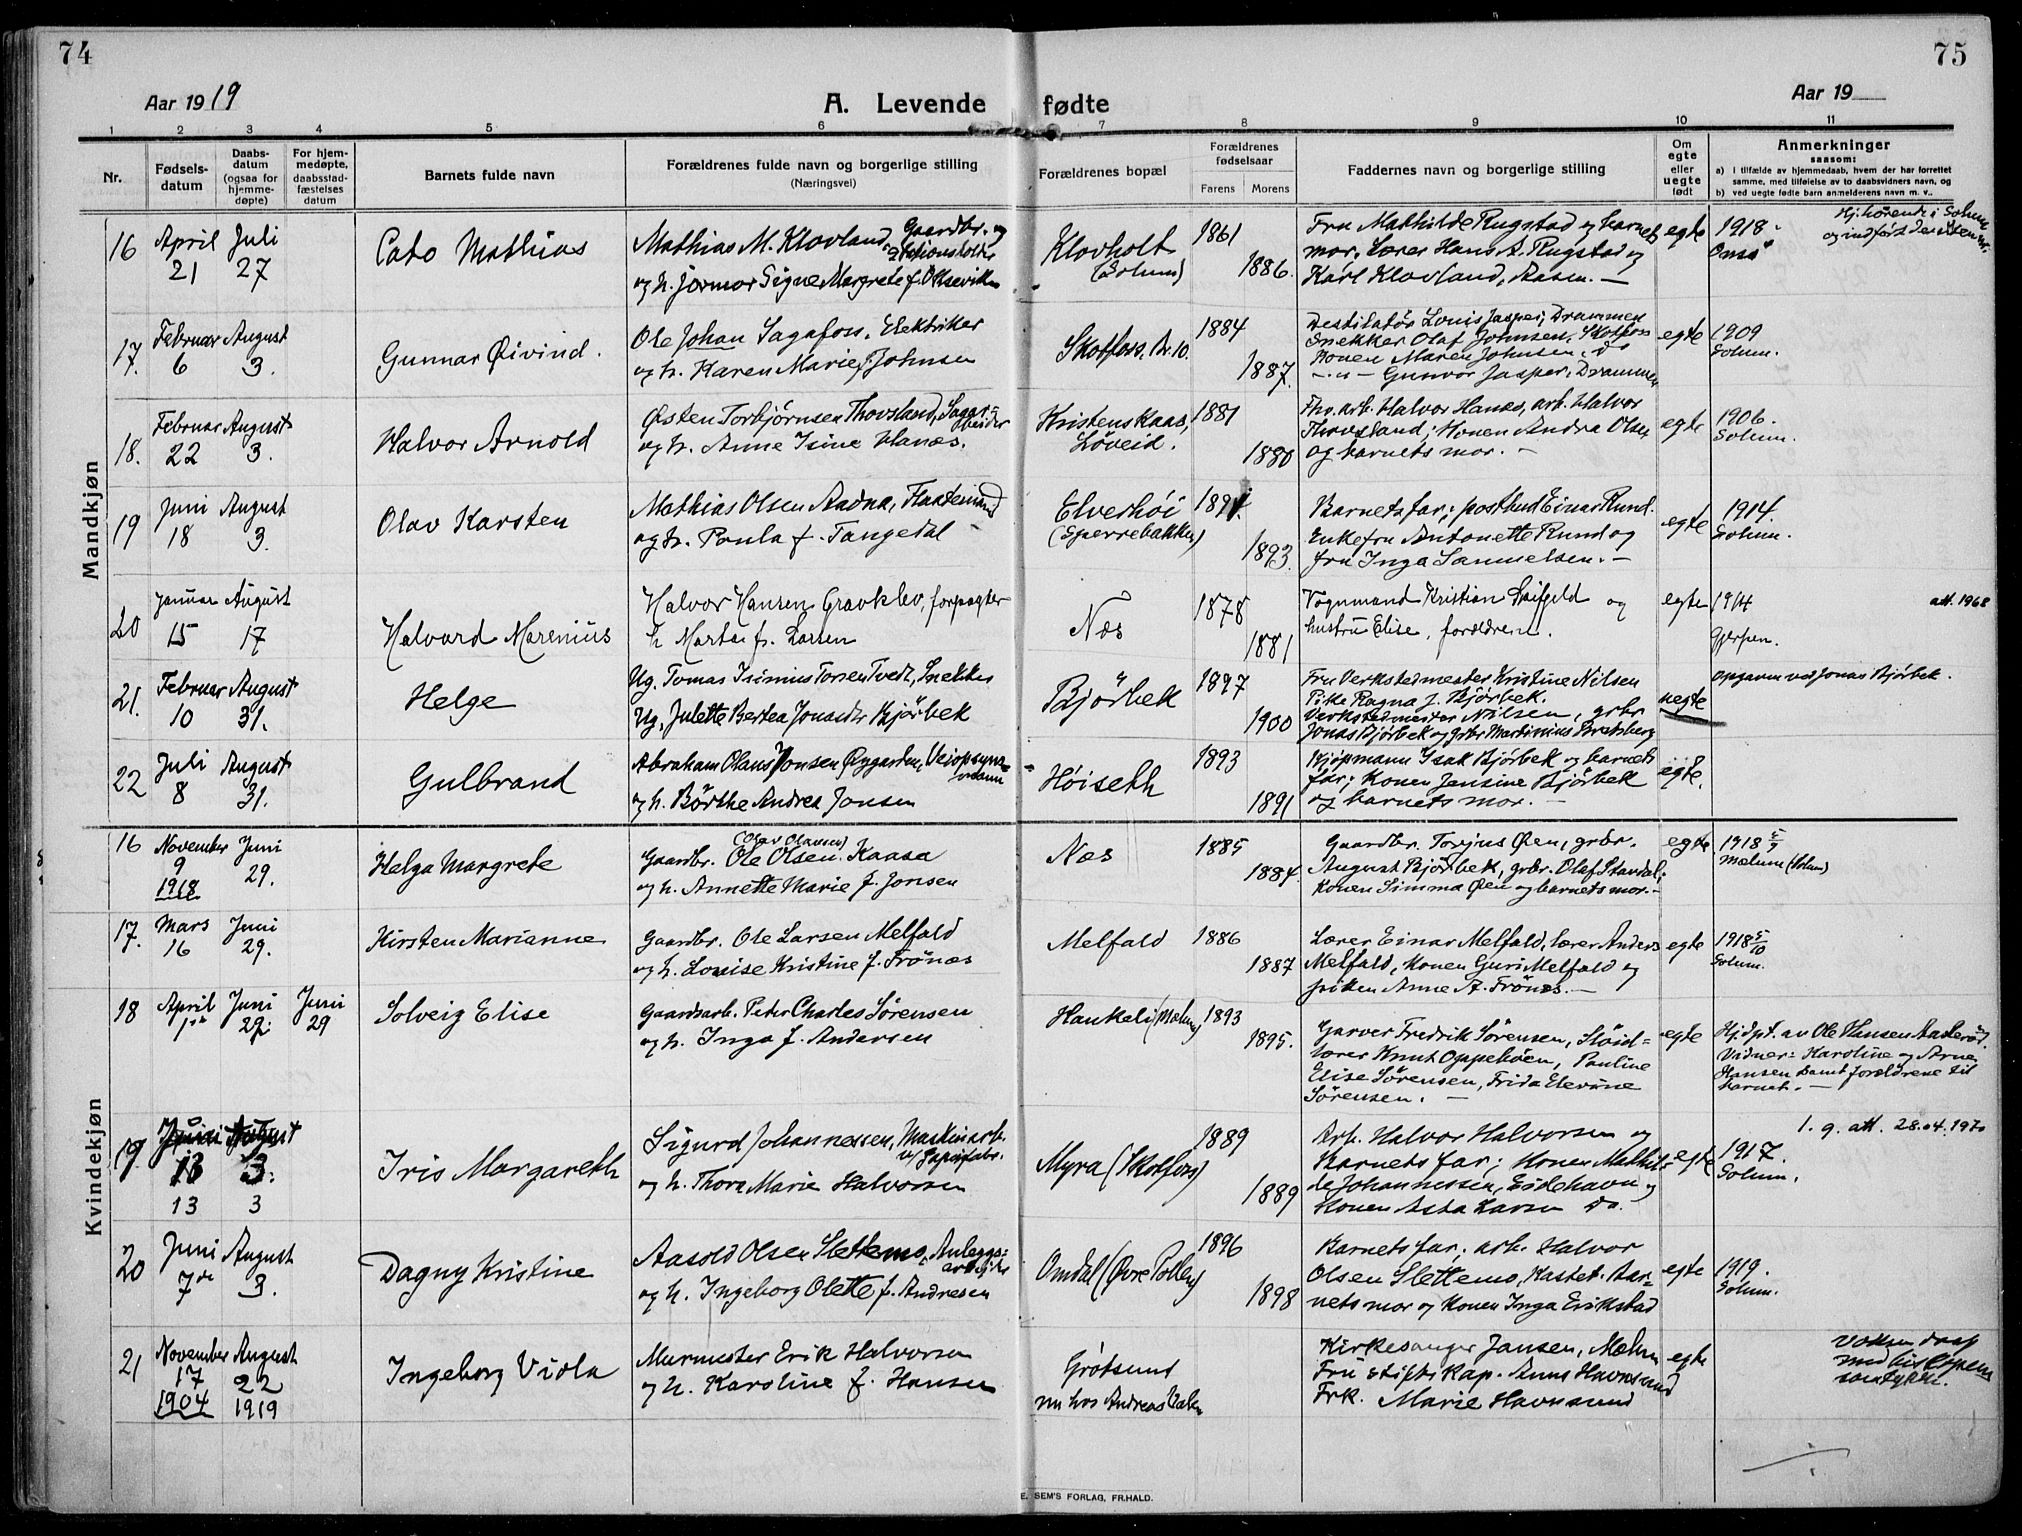 74
75
Aar 1919
A. Levende fødte
Aar 19
1 2 3 4 5 6 7 8 9 10 11
Nr.
Fødsels-
datum
Daabs-
datum
(ogsaa for
hjemme-
døpte)
For hjem-
medøpte,
daabsstad-
fæstelses
datum
Barnets fulde navn
Forældrenes fulde navn og borgerlige stilling
(Næringsvei)
Forældrenes bopæl
Forældrenes
fødselsaar
Farens Morens
Faddernes navn og borgerlige stilling
Om
egte
eller
uegte
født
Anmerkninger
saasom:
a) i tilfælde av hjemmedaab, hvem der har forrettet
samme, med tilføielse av to daabsvidners navn, og
b) ved uegte fødte barn anmelderens navn m. v..
Mandkjøn
16 April 21 Juli 27
Cato Mathias
Mathias M. Klovland, Gaardbr. og
Stationsholder
og h. jormor Signe Margrete f. Oksevik
Klovholt
(Solum)
1861
1886.
Fru Mathilde Rugstad og barnets
mor. Lærer Hans A. Rugstad og
Karl Klovland, Aasen. —
egte
1918
Hj.hørende i Solum
og indført der
17. Februar 6 August 3.
Gunnar Øivind.
Ole Johan Sagafoss, Elektriker
og h. Karen Marie f. Johnsen
Skotfoss. Br. 10.
1884
1887.
Destilatør Louis Jasper, Drammen
Snekker Olaf Johnsen, Skotfoss
Konen Maren Johnsen, do
— " — Gunvor Jasper, Drammen
egte
1909
Solum.
18. Februar 22 August 3.
Halvor Arnold
Østen Torbjørnsen Thovsland, Sagar-
beider
og h. Anne Isine Hanæs.
Kristenskaas,
Løveid.
1881
1880
arb. Halvor Hanæs, arb. Halvor
Thovsland; Konen Andra Olsen
og barnets mor. —
egte
1906.
Solum.
19 Juni 18 August 3.
Olav Karsten
Mathias Olsen Aadna,
og h. Paula f. Tangedal
Elverhøi
(Sperrebakken)
1891.
1893.
Barnets far; postbud Einar Rund.
Enkefru Antonette Rund og
fru Inga Samuelsen. —
egte
1914.
Solum.
20 Januar 15 August 17
Halvard Marenius
Halvor Hansen Gravklev, forpagter
h Marta f. Larsen
Næs
1878
1881
Vognmand Kristian Leifgeld og
hustru Elise, forældrene.
egte
1914
Gjerpen.
att. 1968
21. Februar 10 August 31.
Helge
Ug. Tomas Isimius Torsen Tvedt, Snekker
Ug. Julette Bertea Jonasdtr Bjørbek
Bjørbek
1897
1900
Fru Verkstedmester Kristine Nilsen
Pike Ragna J. Bjørbek.
Verkstedmester Nilsen, grbr
Jonas Bjørbek og grbr Martinius Bretsberg
uegte
opgaven ved Jonas Bjørbek.
22 Juli 8 August 31.
Gulbrand
Abraham Olaus Jonsen Øygarden, Veiopsyns-
mann
og h. Børthe Andrea Jonsen
Høiseth
1893
1891
Kjøpmann Isak Bjørbek og barnets
far; Konen Jensine Bjørbek
og barnets mor. —
egte.
?
Kvindekjøn
16 November 9 1918 Juni 29.
Helga Margrete
(Olav Olausen)
Gaardbr. Ole Olsen Kaasa
og h. Annette Marie f. Jonsen
Næs
1885
1884.
Gaardbr. Torjus Øen, grbr.
August Bjørbek, grbr. Olaf Stavdal;
Konen Simma Øen og barnets mor. —
egte
1918 5/7
Mælum (Solum)
17. Mars 16 Juni 29.
Kirsten Marianne
Gaardbr. Ole Larsen Melfald
og h. Louise Kristine f. Frönæs
Melfald
1886
1887
Lærer Einar Melfald, lærer Anders
Melfald, Konen Guri Melfald og
piken Anne A. Frönæs. —
egte
1918 5/10
Solum.
18 April 1ste Juni 29. Juni 29
Solveig Elise
Gaardsarb. Peter Charles Sörensen
og h. Inga f. Andersen
Hankeli (Mælum)
1893
1895.
Garver Fredrik Sörensen, Sløid-
lærer Knut Oppebøen, Pauline
Elise Sörensen, Frida Elevine
Sörensen. —
egte
Hj.dpt. av Ole Hansen Aasterød.
Vidner: Karoline og Arne
Hansen samt forældrene til
barnet. —
19. Juni 13 August 3.
13 3
Iris Margareth
Sigurd Johannessen, Maskinarb.
v/ Papirfabr.
og h. Thora Marie Halvorsen
Myra (Skotfoss)
1889
1889
Arb. Halvor Halvorsen og
Barnets far; Konen Mathil-
de Johannessen, Eidehavn og
Konen Asta Larsen Do.
egte
1917.
Solum.
1. g. att. 28.04.1970
20 Juni 7de August 3.
Dagny Kristine
Aasold Olsen Slettemo, Anleggs-
arbeider
og h. Ingeborg Olette f. Andresen
Omdal (Øvre Pollen)
1896
1898
Barnets far. arb. Halvor
Olsen Slettemo, Kastet. Bar-
nets mor og Konen Inga Erikstad
egte
1919.
Solum.
21 November 17 1904 August 22 1919
Ingeborg Viola
Murmester Erik Halvorsen
og h. Karoline f. Hansen
Grøtsund
nu hos Andreas
Kirkesanger Jansen, Mælum
Fru stiftskap. Anna Havnsund
Frk. Marie Havnsund
egte
voksen daap
med biskopens
samtykke.
E. SEM'S FORLAG, FR.HALD.